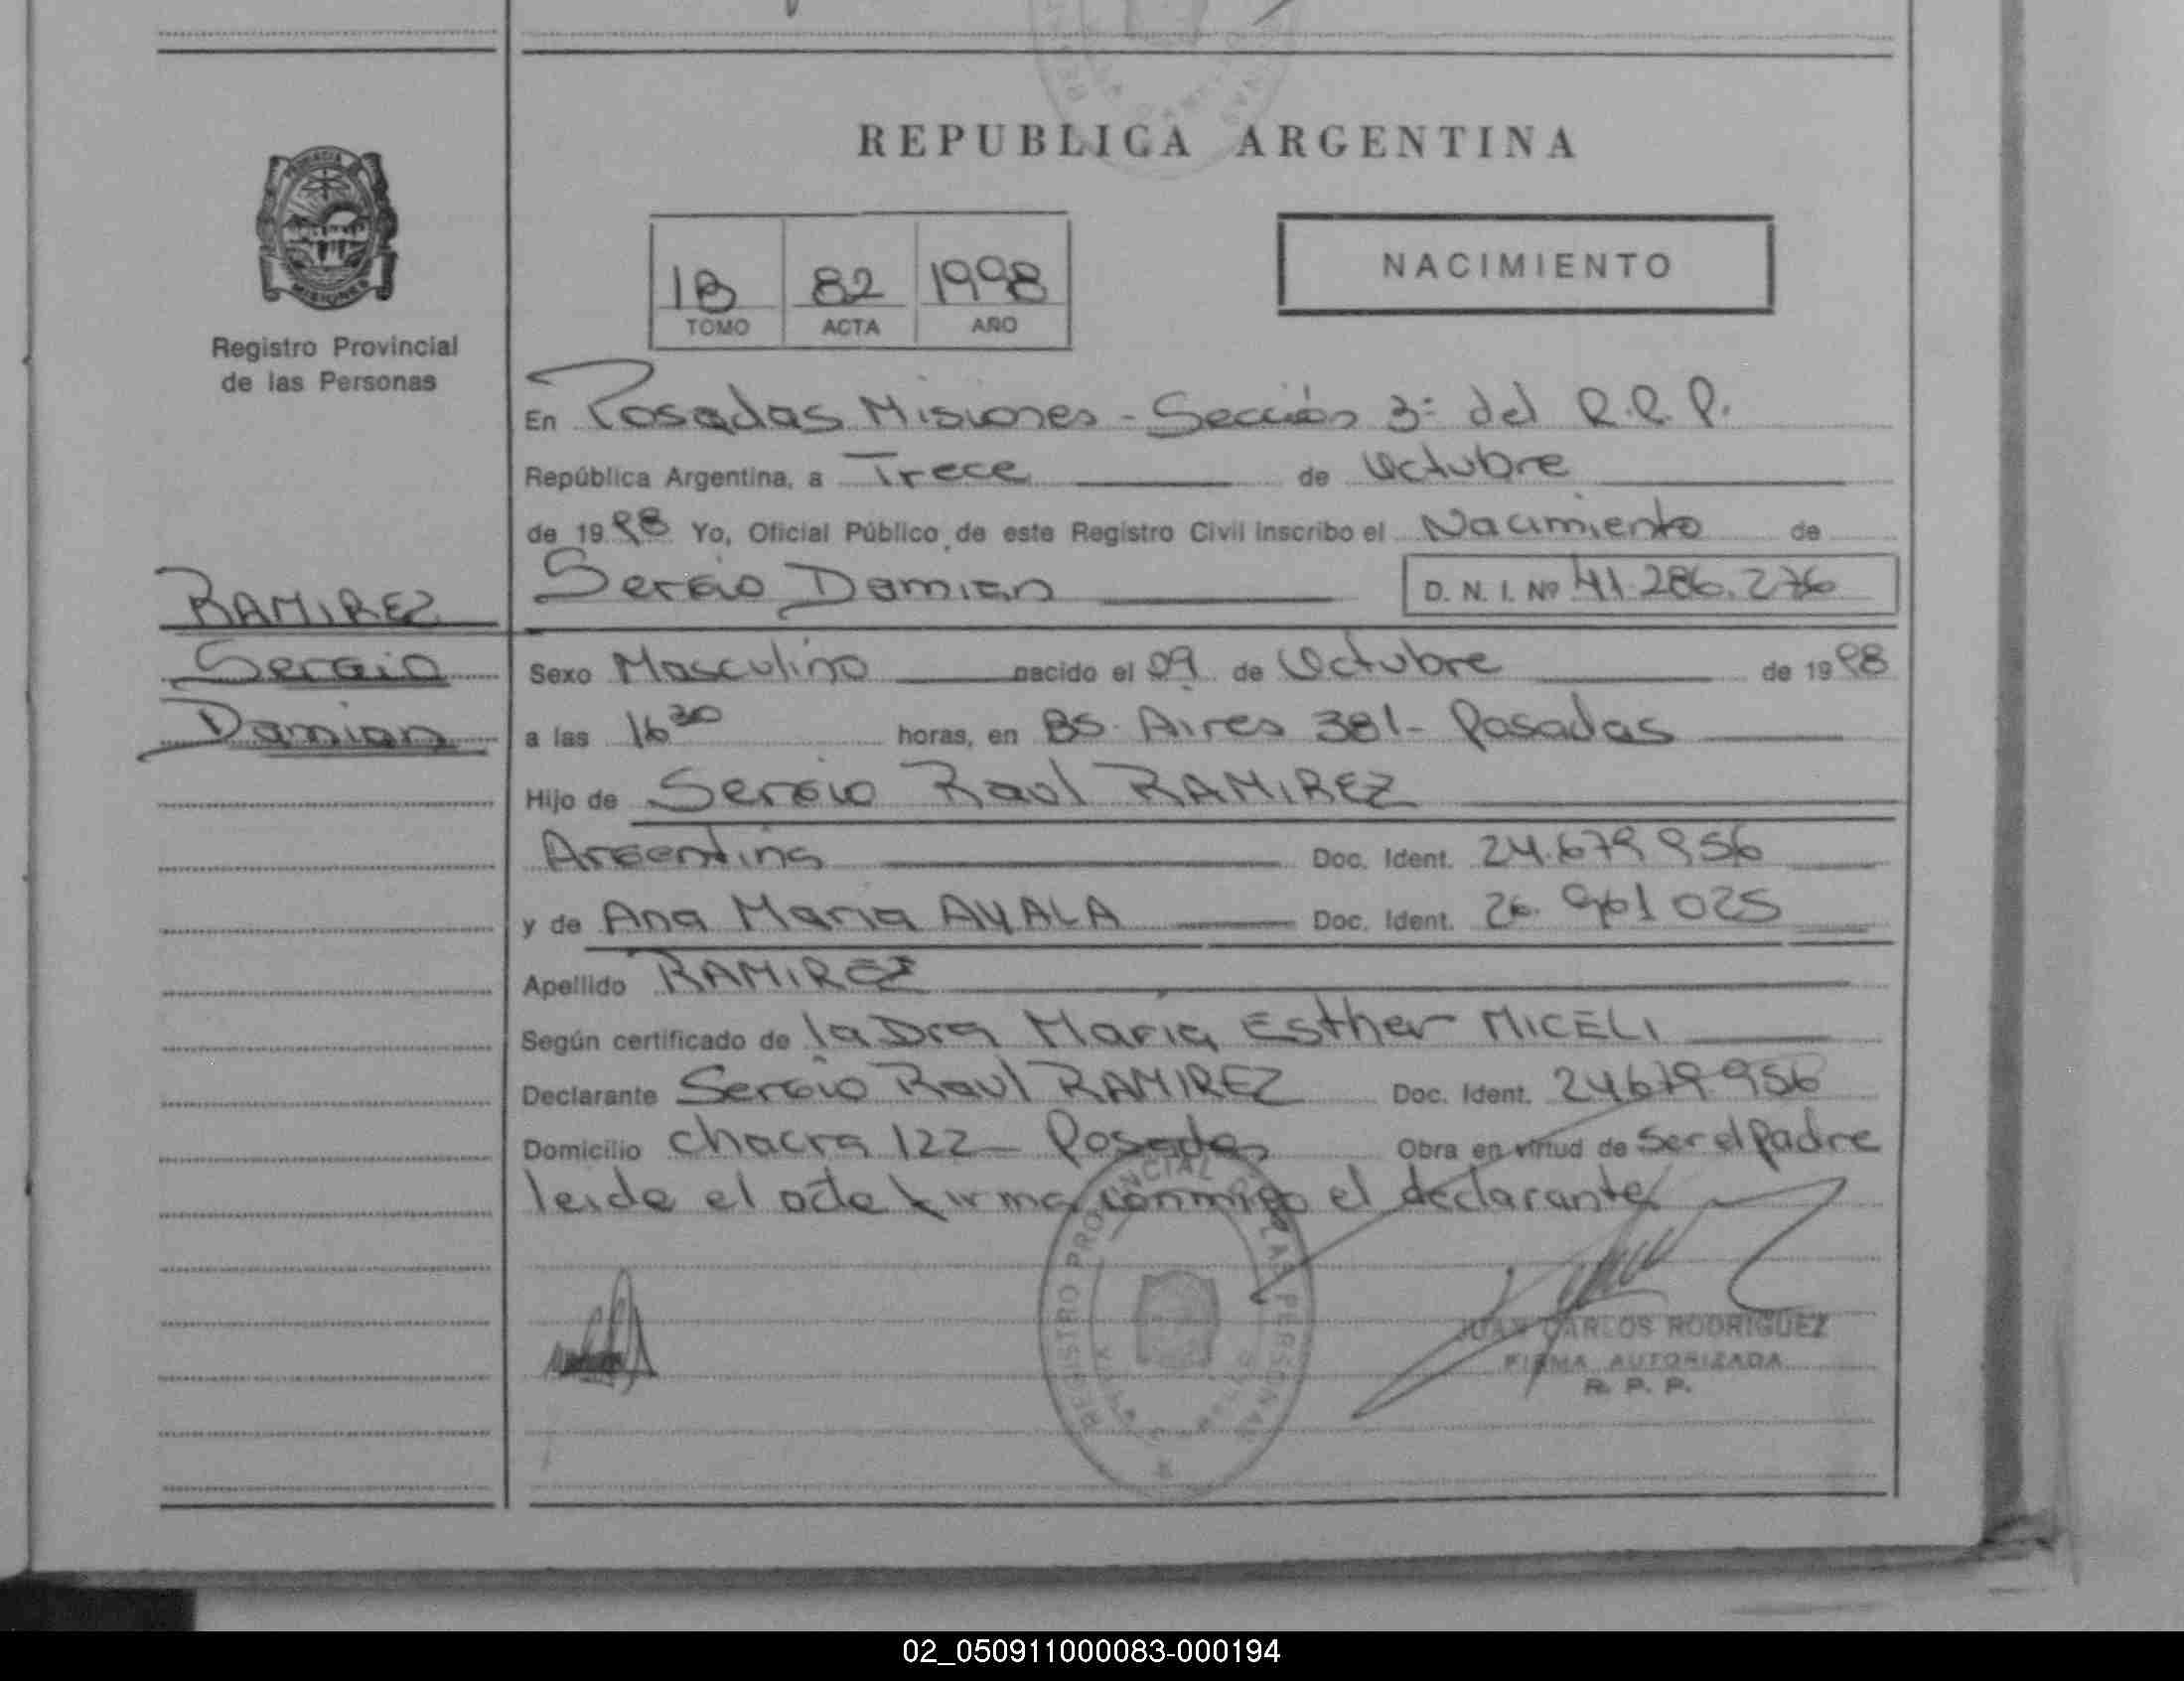 REPUBLICA ARGENTINA
MISIONES
Registro Provincial
de las Personas
1B 82 1998
TOMO ACTA AÑO
NACIMIENTO
En Posadas Misiones - Sección 3º del R.P.P.
República Argentina, a Trece de Octubre
de 1998 Yo, Oficial Público de este Registro Civil inscribo el Nacimiento de
Sergio Damian D. N. I. Nº 41.286.276
RAMIREZ
Sergio
Damian
Sexo Masculino nacido el 09 de Octubre de 1998
a las 16 30 horas, en BS. Aires 381 - Posadas
Hijo de Sergio Raul RAMIREZ
Argentina Doc. Ident. 24.679 956
y de Ana Maria AYALA Doc. Ident. 26. 961 025
Apellido RAMIREZ
Según certificado de la Dra Maria Esther MICELI
Declarante Sergio Raul RAMIREZ Doc. Ident. 24679956
Domicilio chacra 122 - Posadas Obra en virtud de Ser el Padre
leida el acta firma conmigo el declarante
REGISTRO PROVINCIAL DE LAS PERSONAS
JUAN CARLOS RODRIGUEZ
FIRMA AUTORIZADA
R. P. P.
02_050911000083-000194